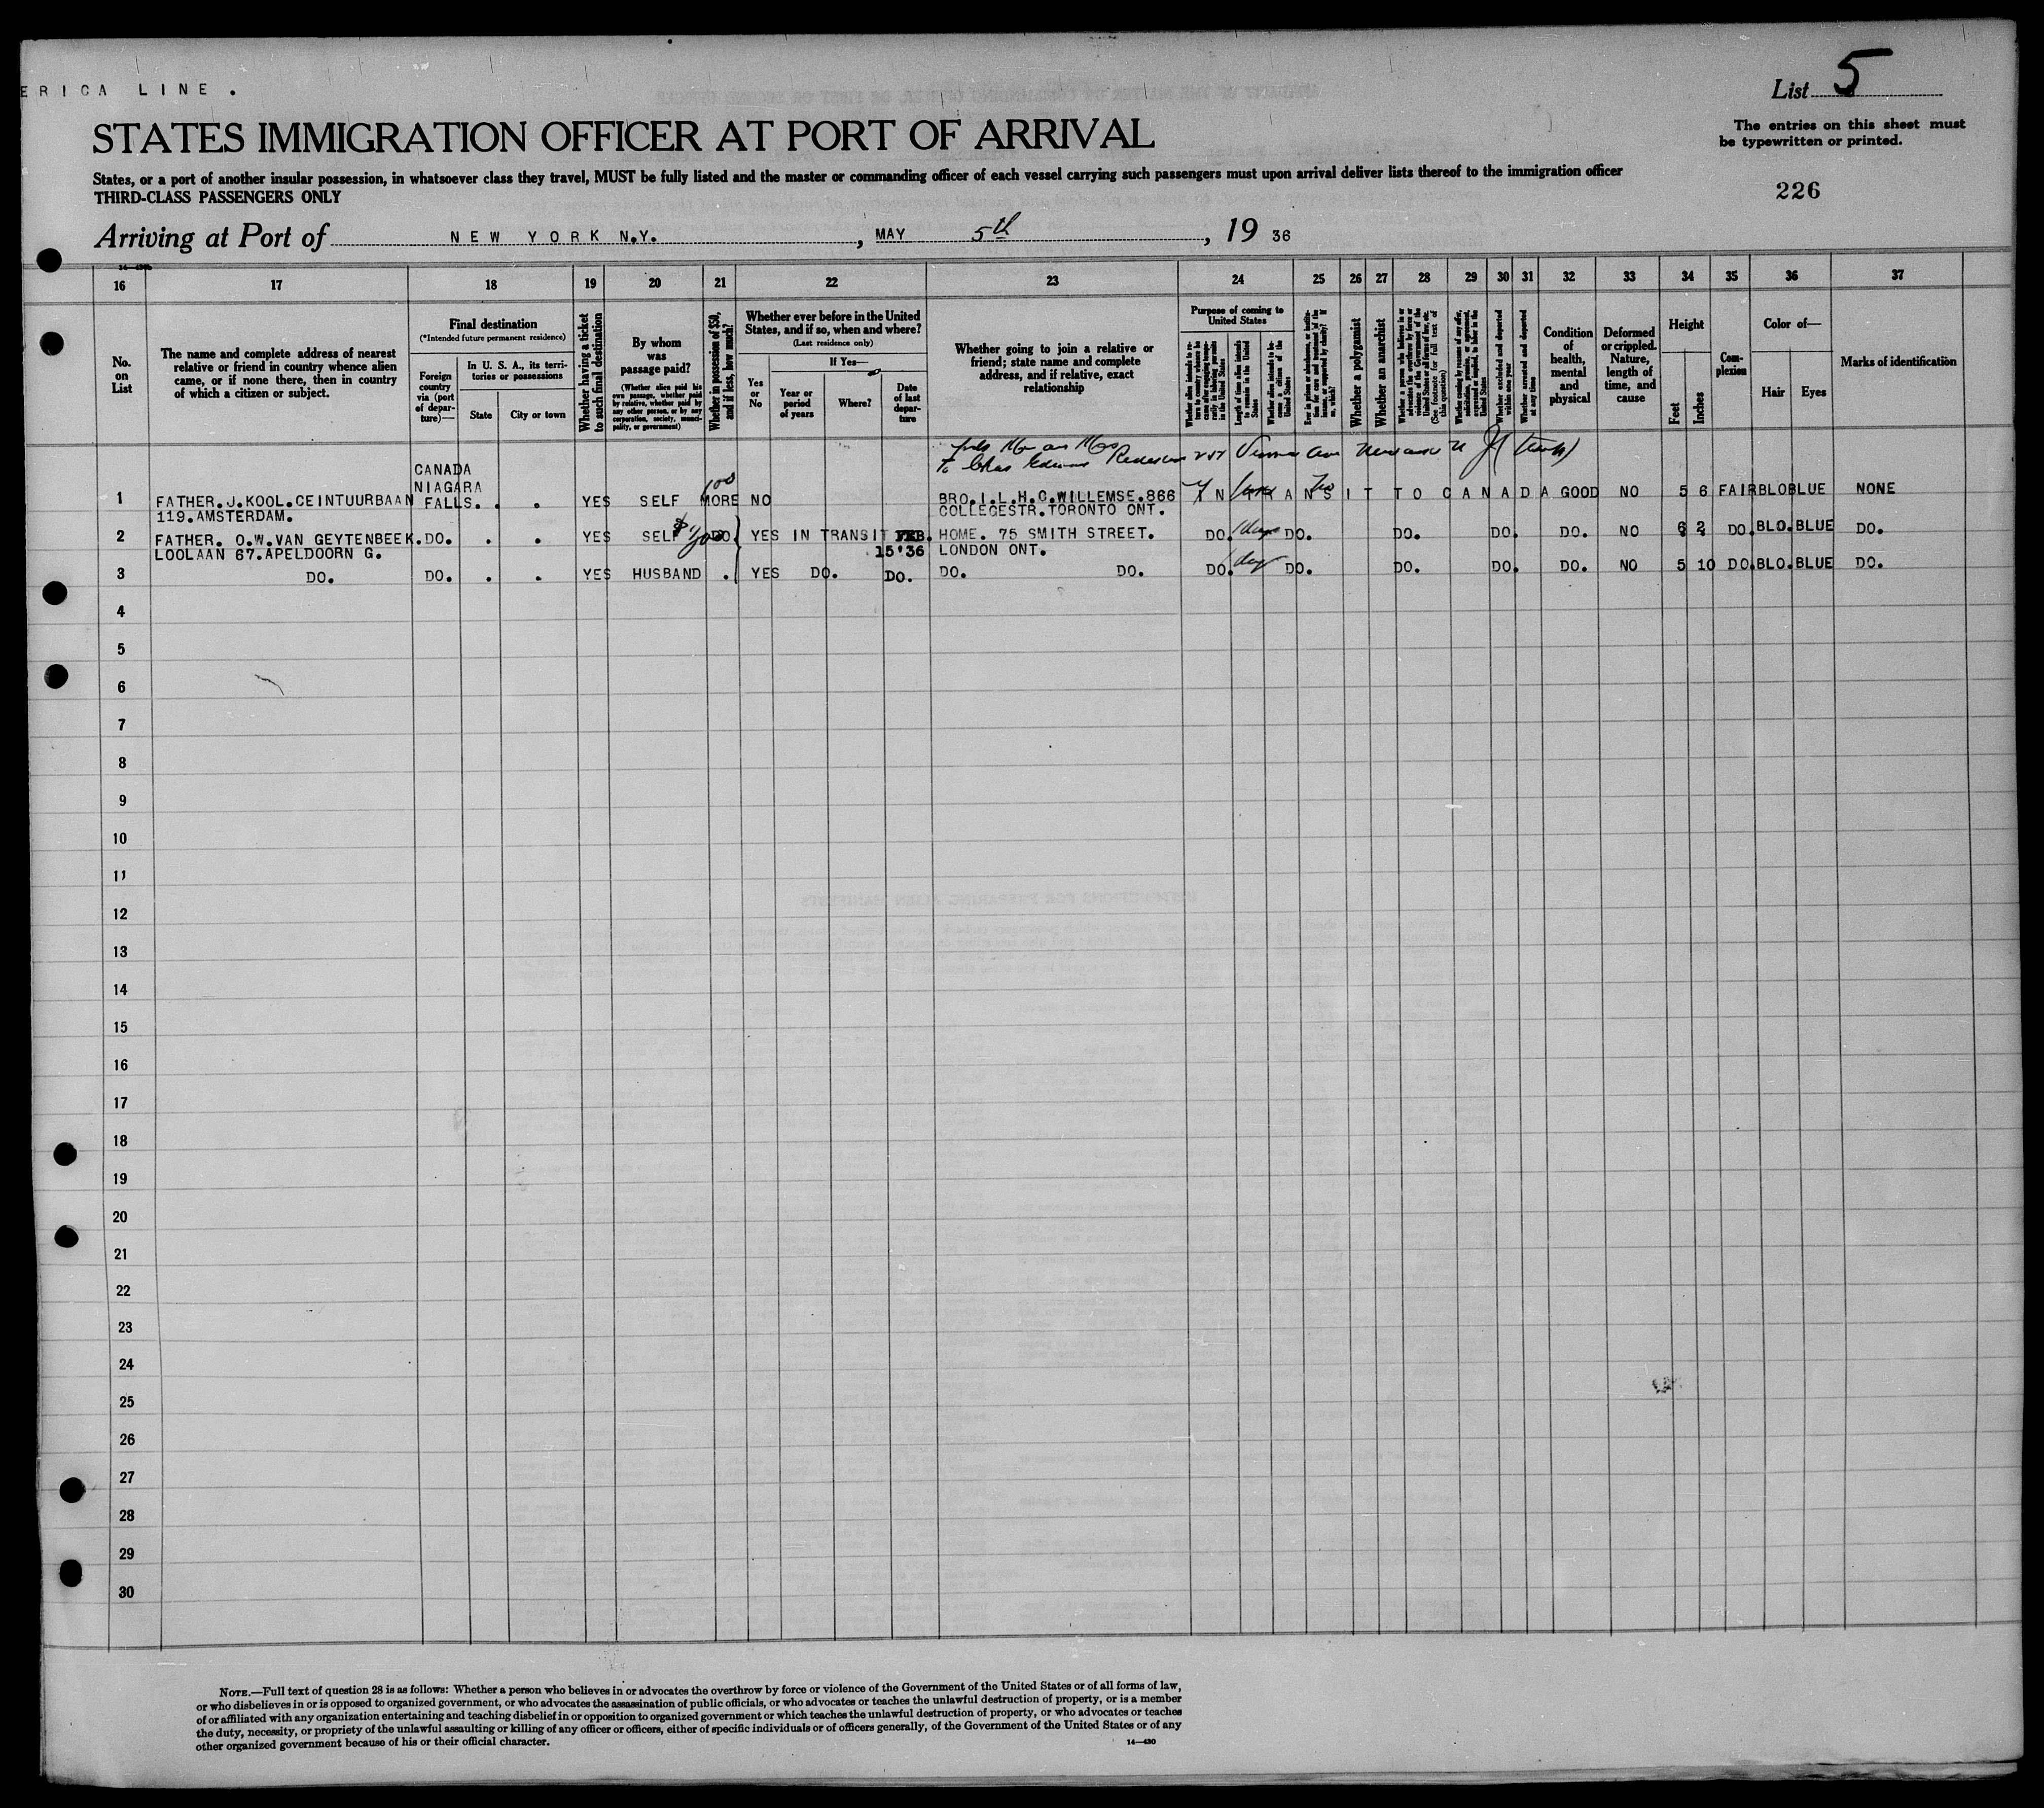 ERICA LINE.
List 5
STATES IMMIGRATION OFFICER AT PORT OF ARRIVAL
The entries on this sheet must
be typewritten or printed.
States, or a port of another insular possession, in whatsoever class they travel, MUST be fully listed and the master or commanding officer of each vessel carrying such passengers must upon arrival deliver lists thereof to the immigration officer
THIRD-CLASS PASSENGERS ONLY
226
Arriving at Port of NEW YORK N.Y., MAY 5th, 19 36
16 17 18 19 20 21 22 23 24 25 26 27 28 29 30 31 32 33 34 35 36 37
No.
on
List
The name and complete address of nearest
relative or friend in country whence alien
came, or if none there, then in country
of which a citizen or subject.
Final destination
(*Intended future permanent residence)
Foreign
country
via (port
of depar-
ture)—
In U. S. A., its terri-
tories or possessions
State
City or town
Whether having a ticket
to such final destination
By whom
was
passage paid?
(Whether alien paid his
own passage, whether paid
by relative, whether paid by
any other person, or by any
corporation, society, munici-
pality, or government)
Whether in possession of $50,
and if less, how much?
Whether ever before in the United
States, and if so, when and where?
(Last residence only)
Yes
or
No
If Yes—
Year or
period
of years
Where?
Date
of last
depar-
ture
Whether going to join a relative or
friend; state name and complete
address, and if relative, exact
relationship
Purpose of coming to
United States
Whether alien intends to re-
turn to country whence he
came after engaging tempo-
rarily in laboring pursuits
in the United States
Length of time alien intends
to remain in the United
States
Whether alien intends to be-
come a citizen of the
United States
Whether a polygamist
Whether an anarchist
Whether a person who believes in or
advocates the overthrow by force or
violence of the Government of the
United States or all forms of law, etc.
(See footnote for full text of
this question)
Whether excluded and deported
within one year
Whether arrested and deported
at any time
Condition
of
health,
mental
and
physical
Deformed
or crippled.
Nature,
length of
time, and
cause
Height
Feet
Inches
Com-
plexion
Color of—
Hair
Eyes
Marks of identification
CANADA
NIAGARA
1 FATHER.J.KOOL.CEINTUURBAAN FALLS. . . YES SELF 100 MORE NO BRO.I.L.H.C.WILLEMSE.866 IN TRANSIT TO CANADA GOOD NO 5 6 FAIR BLO BLUE NONE
119.AMSTERDAM. COLLEGESTR.TORONTO ONT.
2 FATHER. O.W.VAN GEYTENBEEK. DO. . . YES SELF DO. YES IN TRANSIT FEB. HOME. 75 SMITH STREET. DO. 1 day DO. DO. DO. DO. NO 6 2 DO. BLO. BLUE DO.
LOOLAAN 67.APELDOORN G. 15'36 LONDON ONT.
3 DO. DO. . . YES HUSBAND . YES DO. DO. DO. DO. DO. 1 day DO. DO. DO. DO. NO 5 10 DO. BLO. BLUE DO.
4
5
6
7
8
9
10
11
12
13
14
15
16
17
18
19
20
21
22
23
24
25
26
27
28
29
30
NOTE.—Full text of question 28 is as follows: Whether a person who believes in or advocates the overthrow by force or violence of the Government of the United States or of all forms of law,
or who disbelieves in or is opposed to organized government, or who advocates the assassination of public officials, or who advocates or teaches the unlawful destruction of property, or is a member
of or affiliated with any organization entertaining and teaching disbelief in or opposition to organized government or which teaches the unlawful destruction of property, or who advocates or teaches
the duty, necessity, or propriety of the unlawful assaulting or killing of any officer or officers, either of specific individuals or of officers generally, of the Government of the United States or of any
other organized government because of his or their official character.
14—430